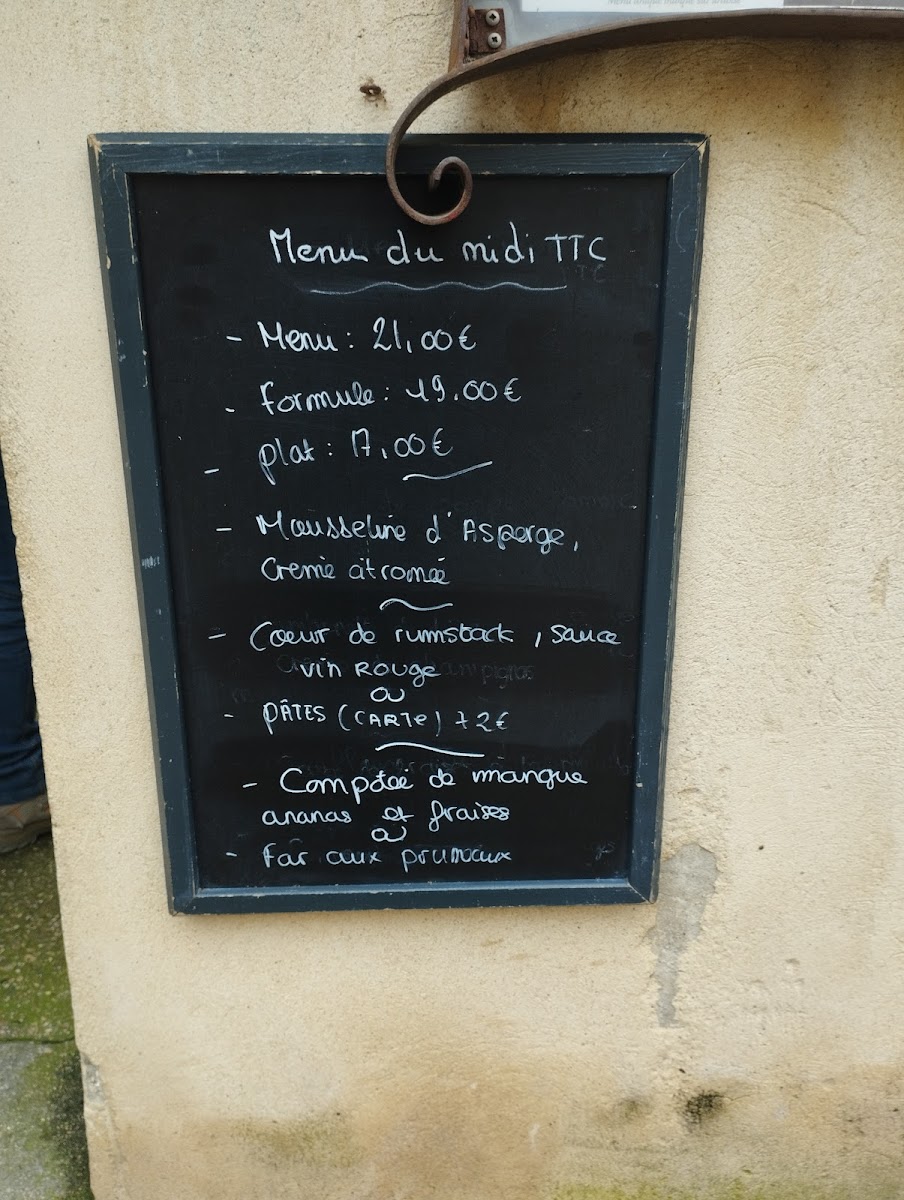 Menu du midi TTC
- Menu : 21,00€
- formule : 19.00€
- plat : 17,00€
- Mousseline d'Asperge,
Creme citronnée
- Coeur de rumstack, sauce
vin ROUGE
ou
- PÂTES (CARTe) +2€
- Compotée de mangue
ananas et fraises
ou
- far aux pruneaux